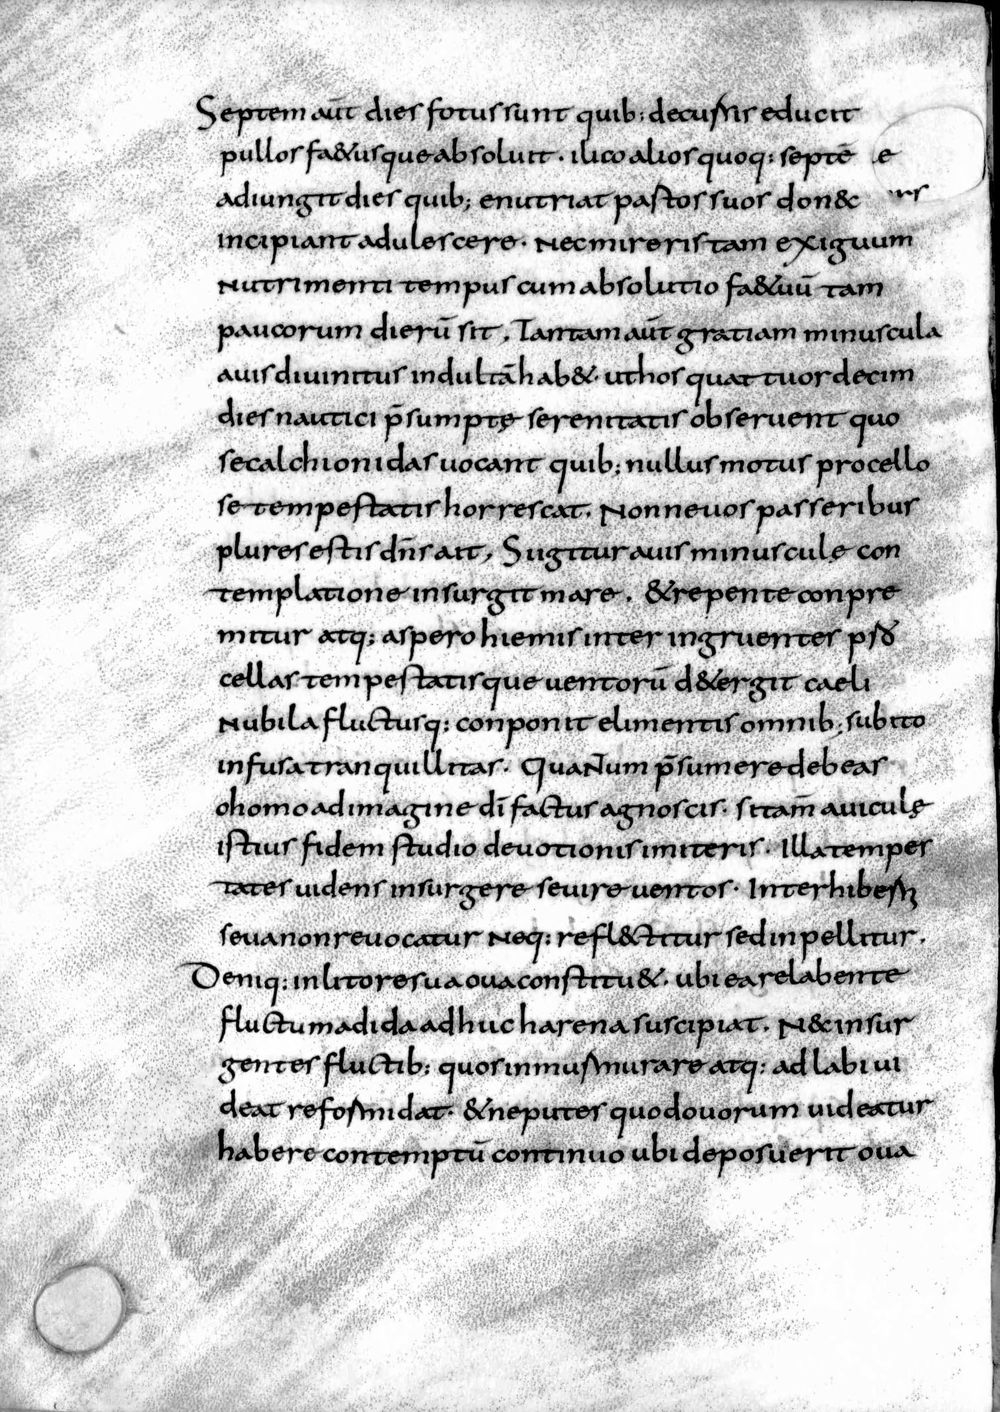 Septem aūt dies fotus sunt quib: decursis educit
pullos fa&usque absoluit. ilico alios quoq: septē
adiungit dies quib; enutriat pastos suos don&
incipiant adulescere. Nec mireris tam exiguum
nutrimenti tempus cum absolutio fa&uū tam
paucorum dierū sit, Tantam aūt gratiam minuscula
auis diuinitus indultā hab&. ut hos quattuordecim
dies nautici p̄sumptę serenitatis obseruent quo
se calchionidas uocant quib; nullus motus procello
se tempestatis horrescat. Nonne uos passeribus
plures estis dn̄s ait, Si igitur auis minusculę con
templatione insurgit mare. & repente conpre
mitur atq; aspero hiemis inter ingruentes
cellas tempestatisque uentorū d&ergit caeli
nubila fluctusq: conponit elimentis omnib; subito
infusa tranquillitas. Quantum p̄sumere debeas
o homo ad imagine dī factus agnoscis. si tam̄ auiculę
istius fidem studio deuotionis imiteris. Illa tempes
tates uidens insurgere seuire uentos. Inter hibern
seua non reuocatur neq: refl&titur sed inpellitur.
Deniq: in litore sua oua constitu&. ubi ea relabente
fluctu madida adhuc harena suscipiat. N& insur
gentes fluctib: quos inmurmurare atq: adlabi ui
deat reformidat. & ne putes quod ouorum uideatur
habere contemptū continuo ubi deposuerit oua